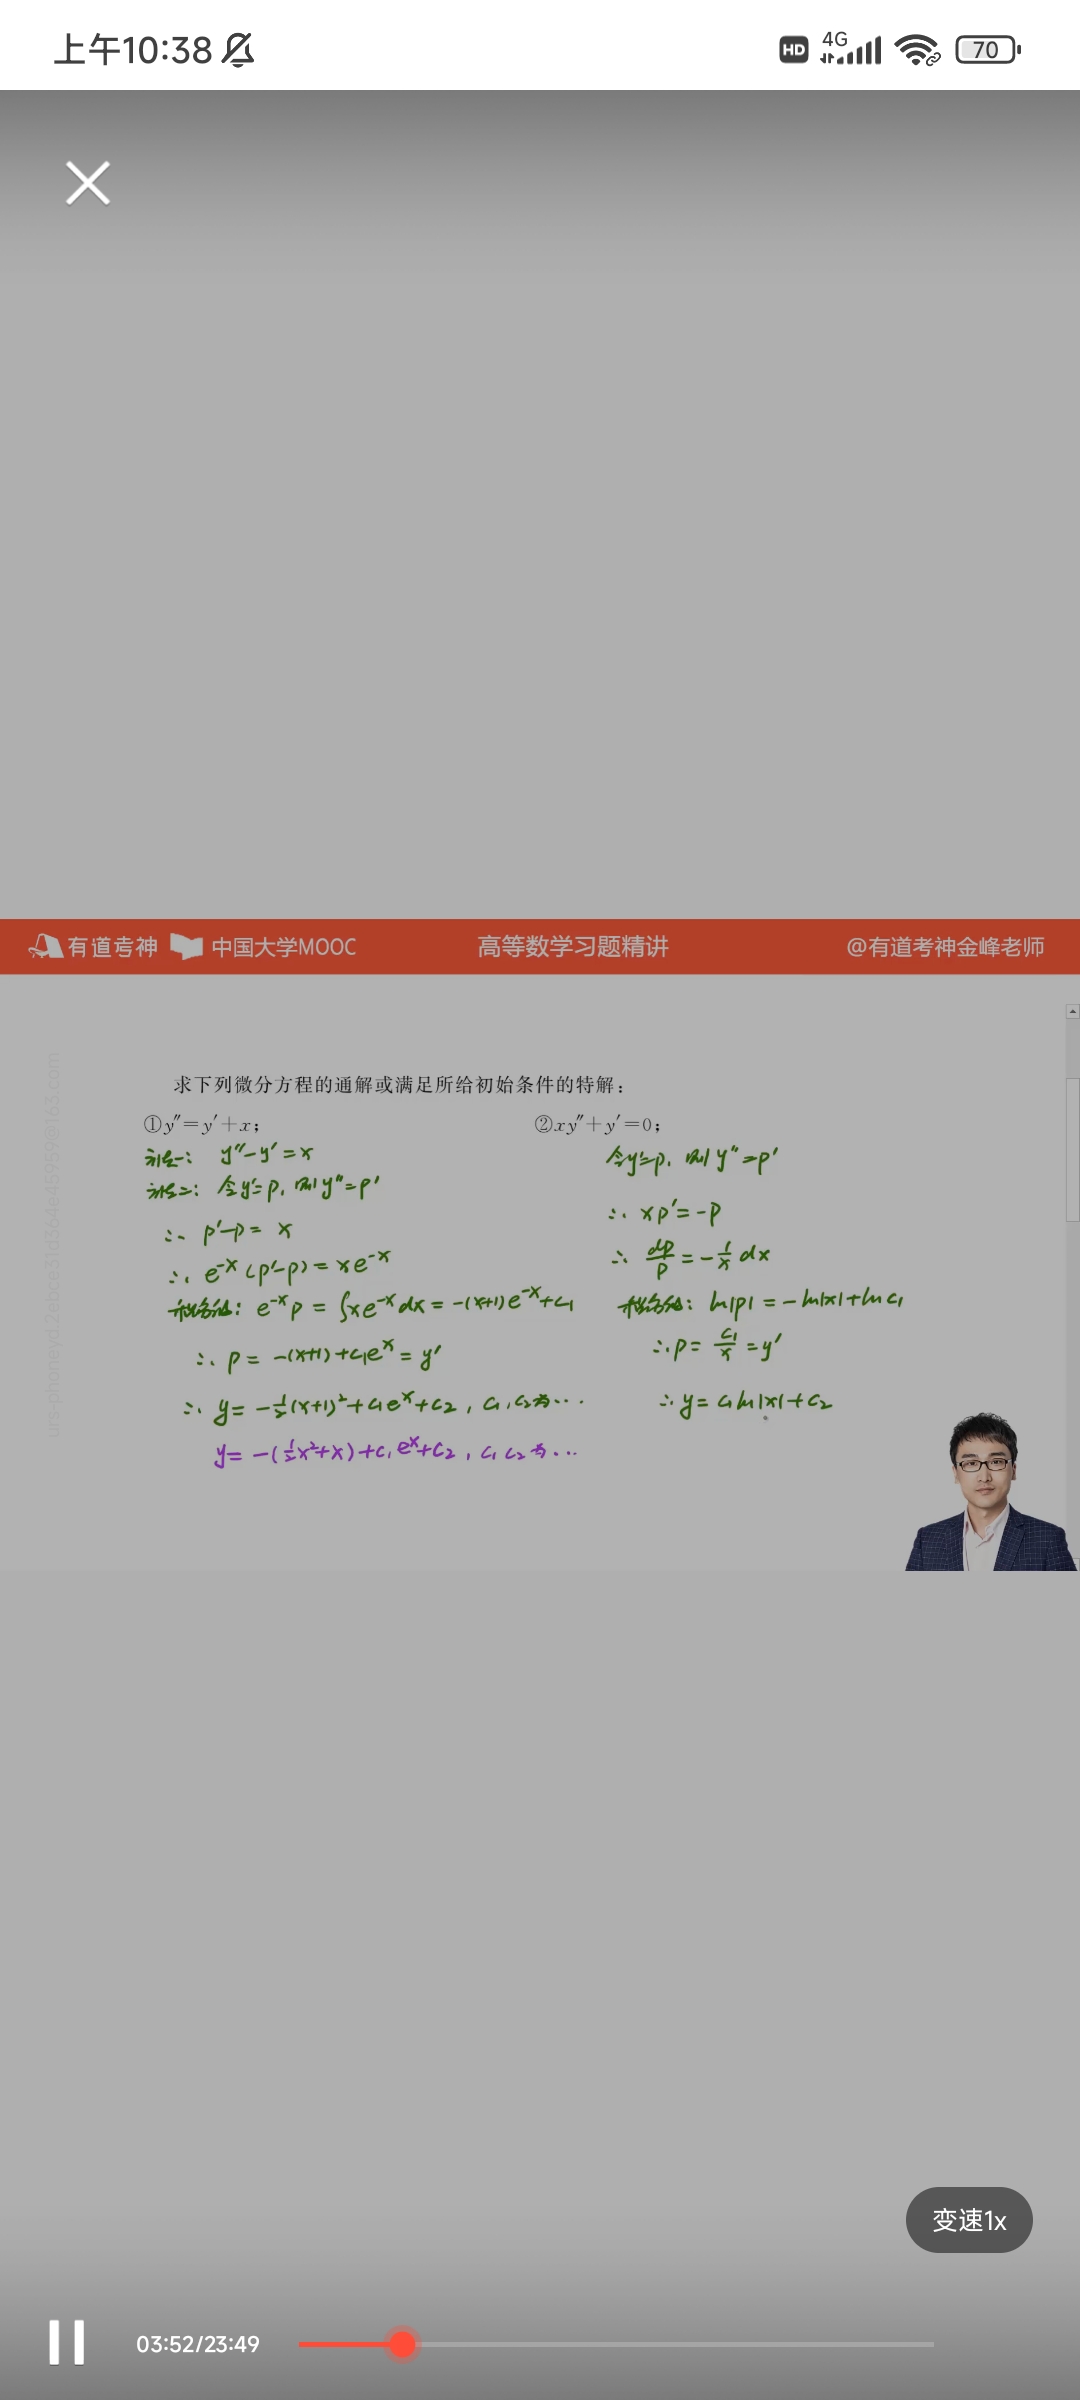 上午10:38
HD 4G 70
有道考神 中国大学MOOC 高等数学习题精讲 @有道考神金峰老师
求下列微分方程的通解或满足所给初始条件的特解：
①y″=y′+x； ②xy″+y′=0；
法一： y″-y′=x
法二： 令y′=p, 则y″=p′
∴ p′-p= x
∴ e^-x(p′-p)=xe^-x
e^-x p = ∫xe^-x dx = -(x+1)e^-x+c₁
∴ p = -(x+1)+c₁e^x = y′
∴ y= -½(x+1)²+c₁e^x+c₂, c₁,c₂为…
y= -(½x²+x)+c₁e^x+c₂, c₁ c₂为…
令y′=p, 则y″=p′
∴ xp′=-p
∴ dp/p = -1/x dx
ln|p| = -ln|x|+ln c₁
∴p= c₁/x =y′
∴y= c₁ln|x|+c₂
变速1x
03:52/23:49